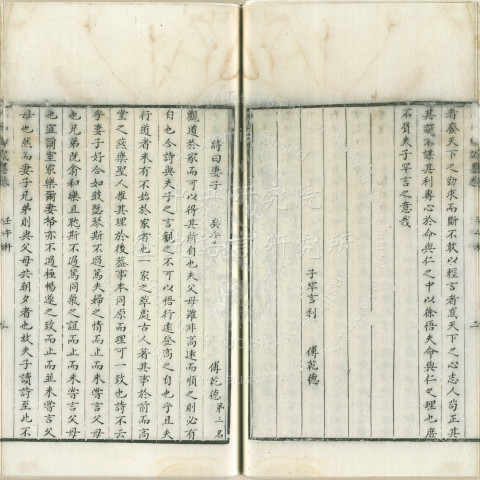 者奪天下之勁求而斷不敢以輕言者惑天下之心志人苟正其
其誼不謀其利專心於命與仁之中以徐悟夫命與仁之理也庶
不負夫子罕言之意哉
子罕言利
傅乾德
詩曰妻子 矣乎
傅乾德 第三名
觀道於家而可以得其所自也夫父母雖非高遠而順之則必有
自也合詩與夫子之言觀之不可以悟行遠登高之自也乎且夫
行道者未有不始於家者也一家之萃處古人著其事於前而高
堂之豫樂聖人推其理於後蓋事本同原而理可一致也詩不云
乎妻子好合如鼓瑟琴斯不過篤夫婦之情而止而未嘗言父母
也兄弟既翕和樂且耽斯不過篤同氣之誼而止而未嘗言父母
也宜爾室家樂爾妻帑亦不過極暢遂之致而止而並未嘗言父
母也然而妻子兄弟則與父母共朝夕者也故夫子讀詩至此不
壬午科